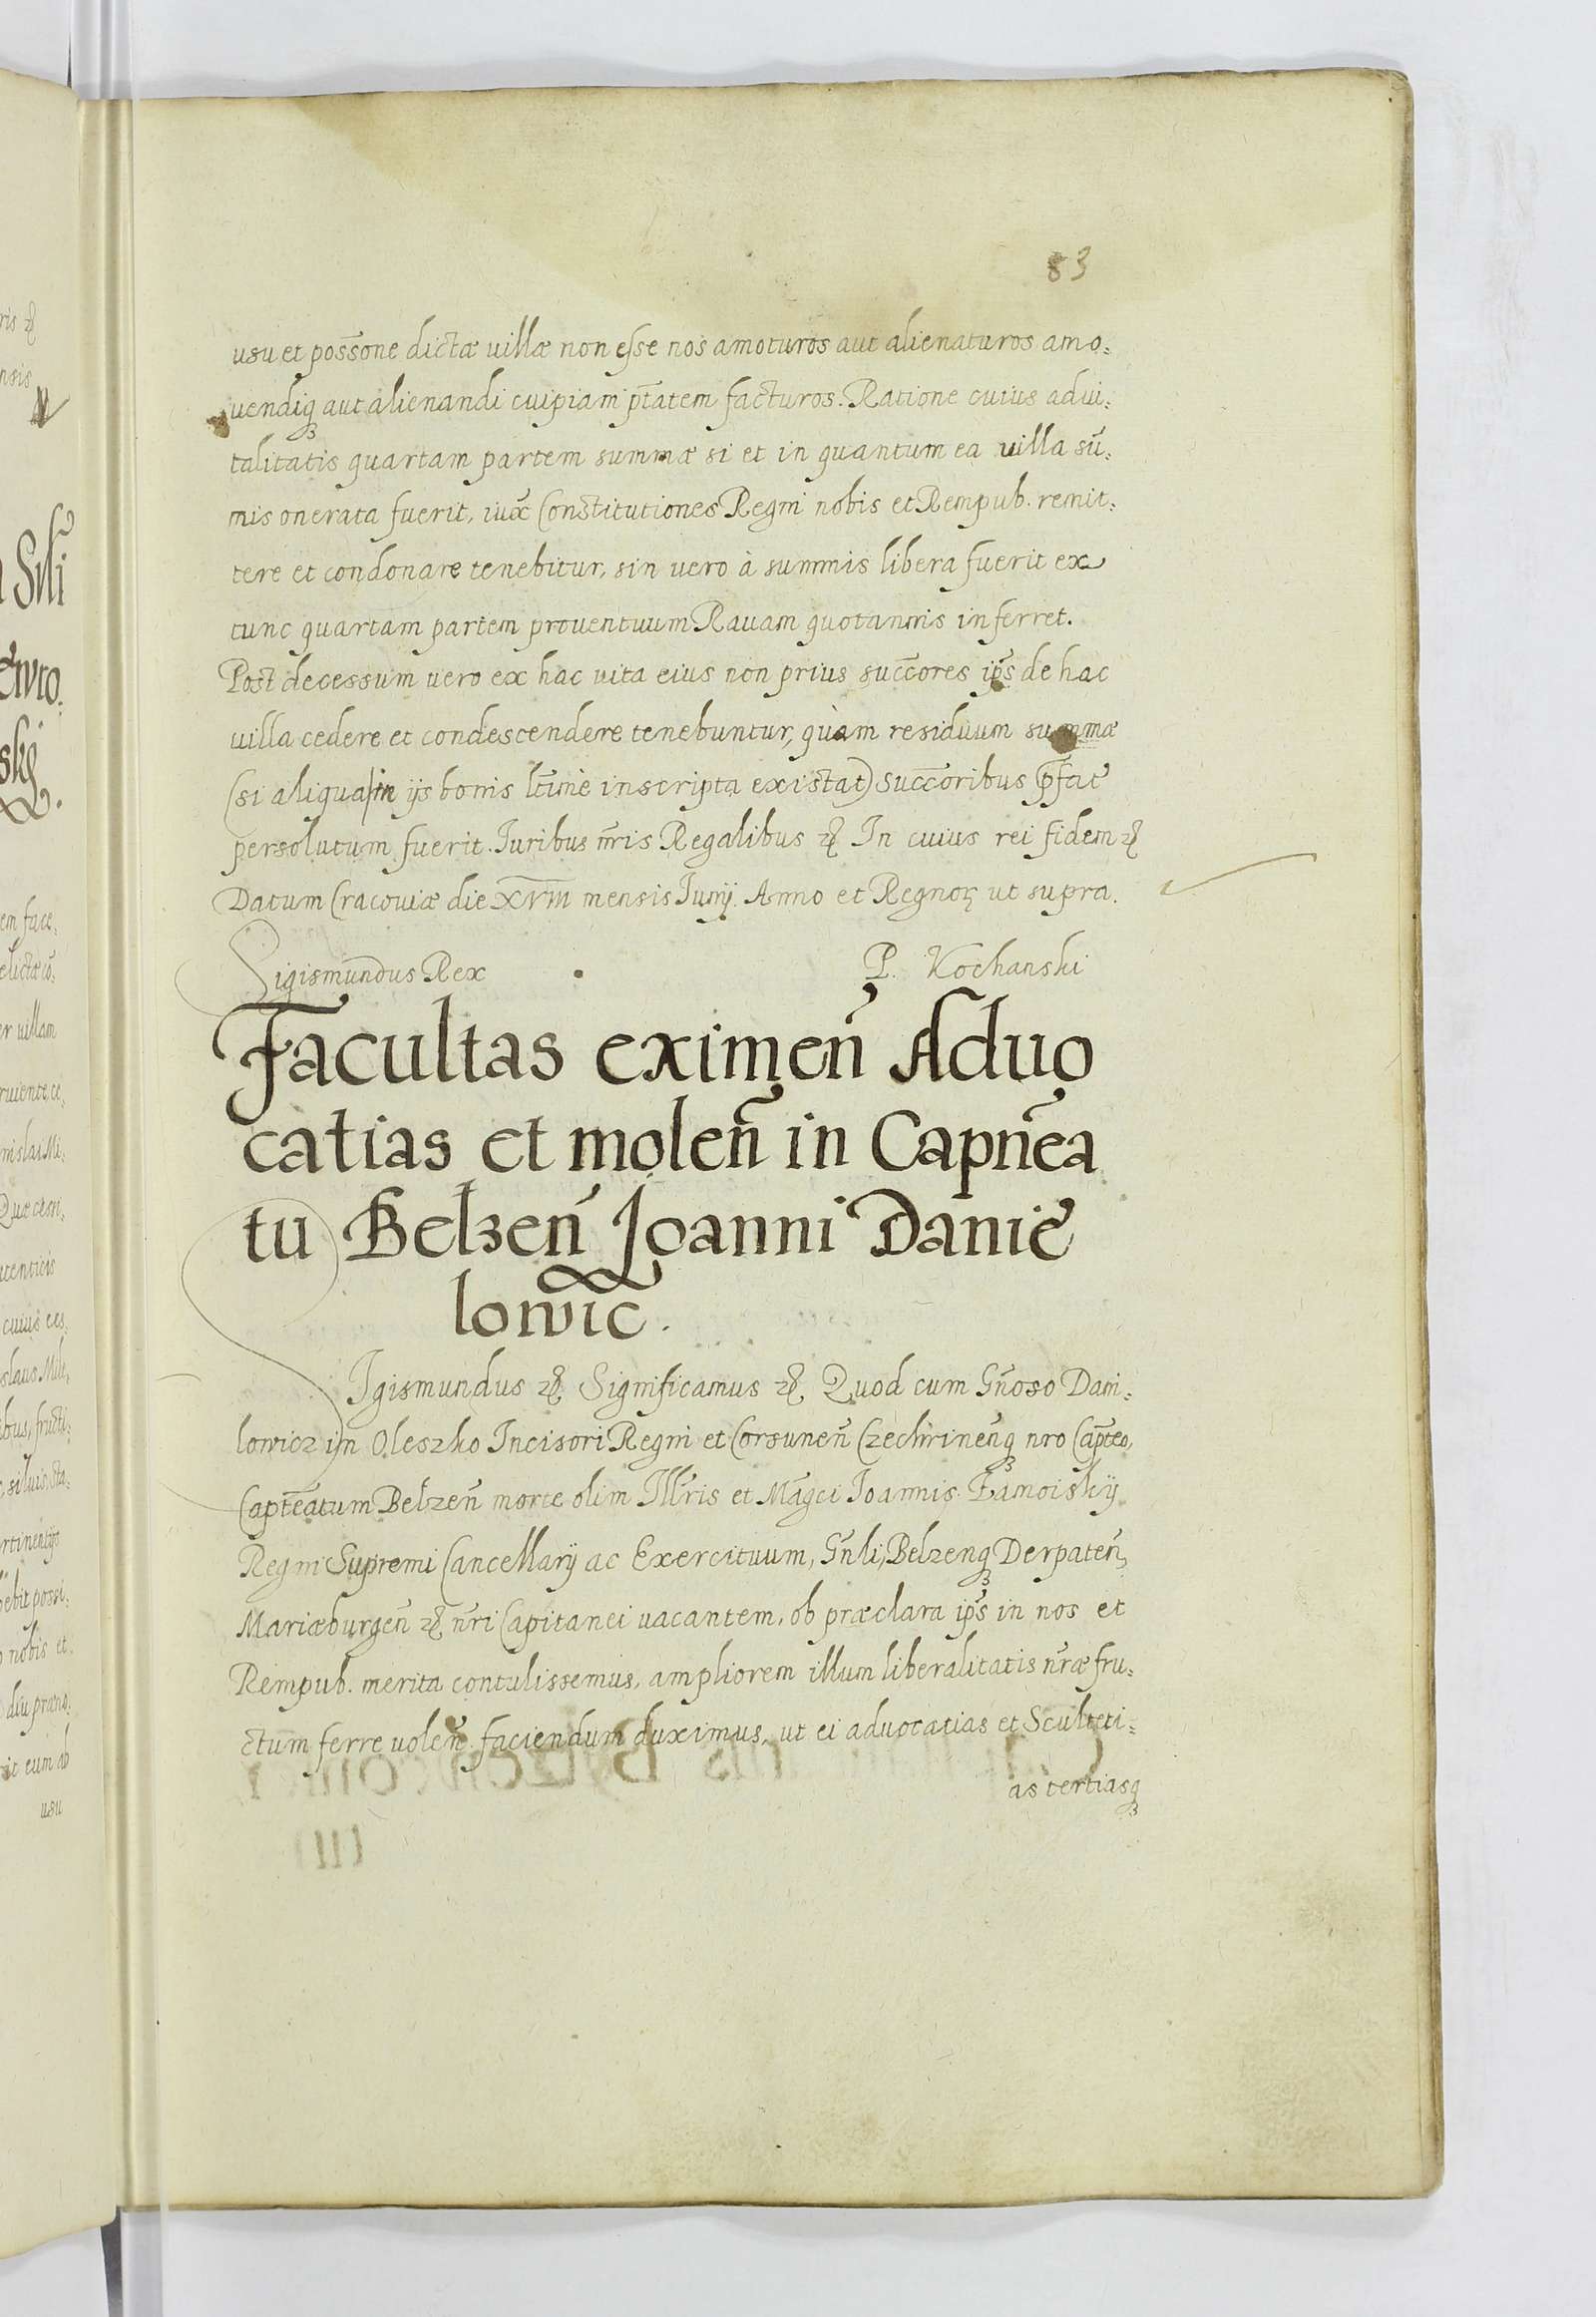 83
usu et possone dictæ uillæ non esse nos amoturos aut alienaturos amo:
uendiq3 aut alienandi cuipiam ptatem facturos. Ratione cuius adui:
talitatis quartam partem summæ si et in quantum ea uilla sū:
mis onerata fuerit, iux Constitutiones Regni nobis et Rempub. remit:
tere et condonare tenebitur, sin uero à summis libera fuerit ex
tunc quartam partem prouentuum Rauam quotannis inferret.
Post decessum uero ex hac uita eius non prius succores ips̄ de hac
uilla cedere et condescendere tenebuntur, quàm residuum summæ
(si aliqua in ijs bonis ltīmè inscripta existat) succoribus p̄fat
persolutum fuerit. Iuribus nr̄is Regalibus &c In cuius rei fidem &c
Datum Cracouiæ die XVIII mensis Iunij. Anno et Regnoꝝ ut supra.
Sigismundus Rex P. Kochanski
Facultas eximen̄ Aduo
catias et molen̄ in Capnēa
tu Belzen̄ Joanni Danie
lowic.
Sigismundus &c Significamus &c Quod cum Gn̄oso Dani:
lowicz in Oleszko Incisori Regni et Corsunen̄ Czechrinenq3 nro Capteo,
Captēatum Belzen̄ morte olim Illr̄is et Maḡci Ioannis Zamoiskij
Regni Supremi Cancellarij ac Exercituum, Gn̄li, Belzenq3 Derpaten̄,
Mariæburgen̄ &c nr̄i Capitanei uacantem, ob præclara ips̄ in nos et
Rempub. merita contulissemus, ampliorem illum liberalitatis nr̄æ fru:
ctum ferre uolen̄ faciendum duximus, ut ei aduocatias et Sculteti:
as tertiasq3